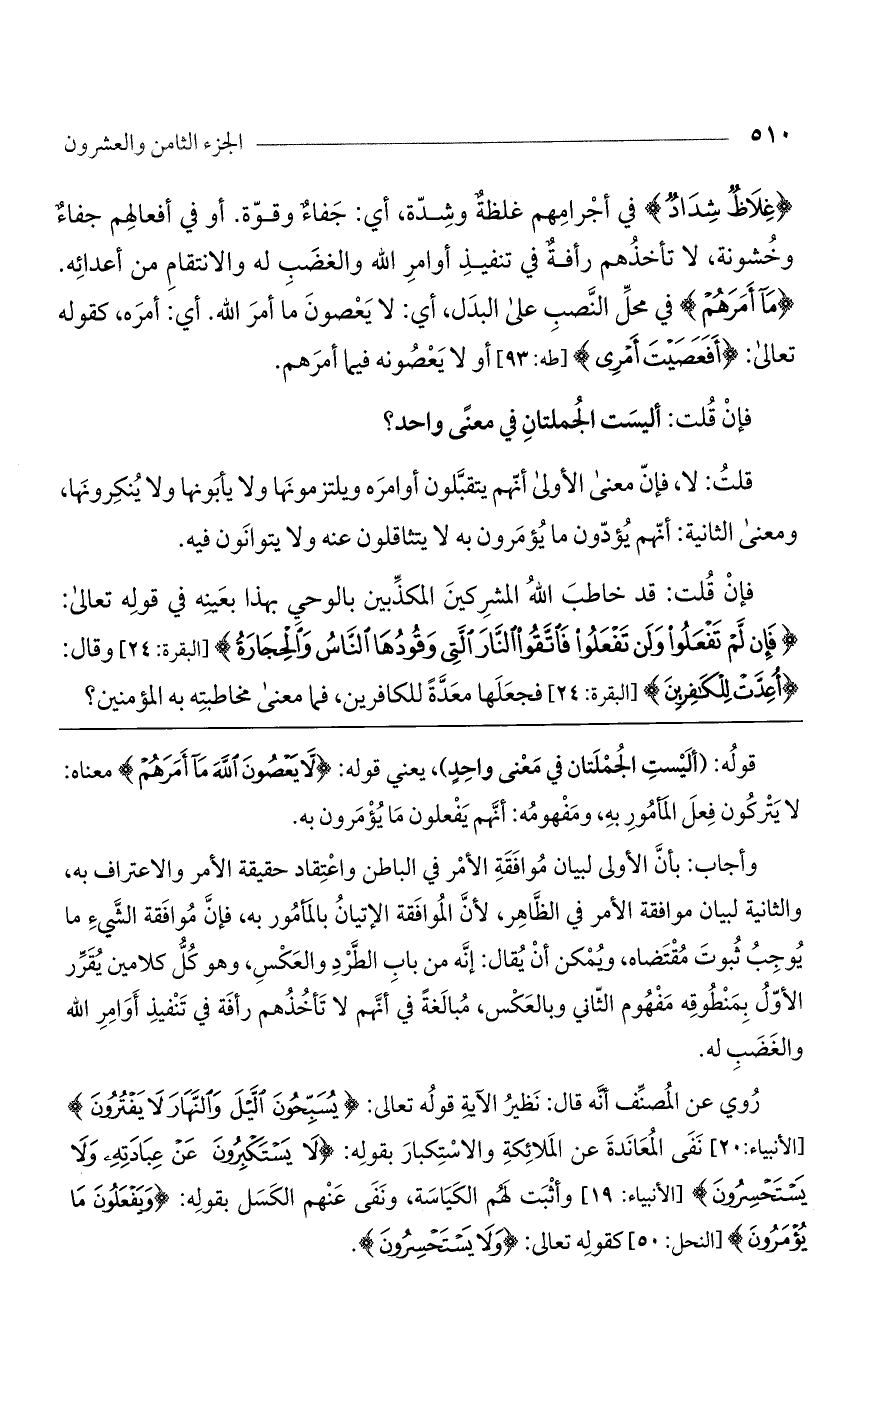 ٥١٠ الجزء الثامن والعشرون
﴿غِلَاظٌ شِدَادٌ﴾ في أجْرامِهم غلظةٌ وشِدّة، أي: جَفاءٌ وقوّة. أو في أفعالهِم جفاءٌ
وخُشونة، لا تأخذُهم رأفةٌ في تنفيذِ أوامرِ الله والغضَبِ له والانتقامِ من أعدائِه.
﴿مَآ أَمَرَهُمْ﴾ في محلِّ النَّصبِ على البدَل، أي: لا يَعْصونَ ما أمرَ الله. أي: أمرَه، كقوله
تعالىٰ: ﴿أَفَعَصَيْتَ أَمْرِى﴾ [طه: ٩٣] أو لا يَعْصُونه فيما أمرَهم.
فإنْ قُلت: أليسَت الجُملتانِ في معنًى واحد؟
قلتُ: لا، فإنّ معنىٰ الأولىٰ أنّهم يتقبَّلون أوامرَه ويلتزمونَها ولا يأبَونها ولا يُنكِرونَها،
ومعنىٰ الثانية: أنّهم يُؤدّون ما يُؤمَرون به لا يتثاقلون عنه ولا يتوانَون فيه.
فإنْ قُلت: قد خاطبَ اللهُ المشركينَ المكذِّبين بالوحيِ بهذا بعَينِه في قولِه تعالىٰ:
﴿فَإِن لَّمْ تَفْعَلُوا۟ وَلَن تَفْعَلُوا۟ فَٱتَّقُوا۟ ٱلنَّارَ ٱلَّتِى وَقُودُهَا ٱلنَّاسُ وَٱلْحِجَارَةُ﴾ [البقرة: ٢٤] وقال:
﴿أُعِدَّتْ لِلْكَٰفِرِينَ﴾ [البقرة: ٢٤] فجعَلَها معَدَّةً للكافرين، فما معنىٰ مخاطبتِه به المؤمنين؟
قولُه: (أَلَيْستِ الجُمْلَتان في مَعْنى واحِدٍ)، يعني قوله: ﴿لَّا يَعْصُونَ ٱللَّهَ مَآ أَمَرَهُمْ﴾ معناه:
لا يَتْركُون فِعلَ المَأمُورِ بهِ، ومَفْهومُه: أنَّهم يَفْعلون مَا يُؤْمَرون به.
وأجاب: بأنَّ الأولى لبيان مُوافَقَةِ الأمْر في الباطن واعْتِقاد حقيقة الأمر والاعتراف به،
والثانية لبيان موافقة الأمر في الظَّاهر، لأنَّ المُوافَقة الإتيانُ بالمَأمُور به، فإنَّ مُوافَقة الشَّيءِ ما
يُوجِبُ ثُبوتَ مُقْتَضاه، ويُمْكن أنْ يُقال: إنَّه من بابِ الطَّرْدِ والعَكْسِ، وهو كُلُّ كلامين يُقَرِّر
الأوّلُ بِمَنْطُوقِه مَفْهُوم الثّاني وبالعَكْس، مُبالَغةً في أنَّهم لا تَأخُذُهم رأفَة في تَنْفيذِ أوَامِرِ الله
والغَضَبِ له.
رُوي عن المُصنِّف أنَّه قال: نَظيرُ الآيةِ قولُه تعالى: ﴿يُسَبِّحُونَ ٱلَّيْلَ وَٱلنَّهَارَ لَا يَفْتُرُونَ﴾
[الأنبياء:٢٠] نَفَى المُعَانَدةَ عن المَلائِكةِ والاسْتِكبارَ بقولِه: ﴿لَا يَسْتَكْبِرُونَ عَنْ عِبَادَتِهِۦ وَلَا
يَسْتَحْسِرُونَ﴾ [الأنبياء: ١٩] وأثْبَت لَهُم الكَيَاسَة، ونَفَى عَنْهم الكَسَل بقولِه: ﴿وَيَفْعَلُونَ مَا
يُؤْمَرُونَ﴾ [النحل: ٥٠] كقولِه تعالى: ﴿وَلَا يَسْتَحْسِرُونَ﴾.